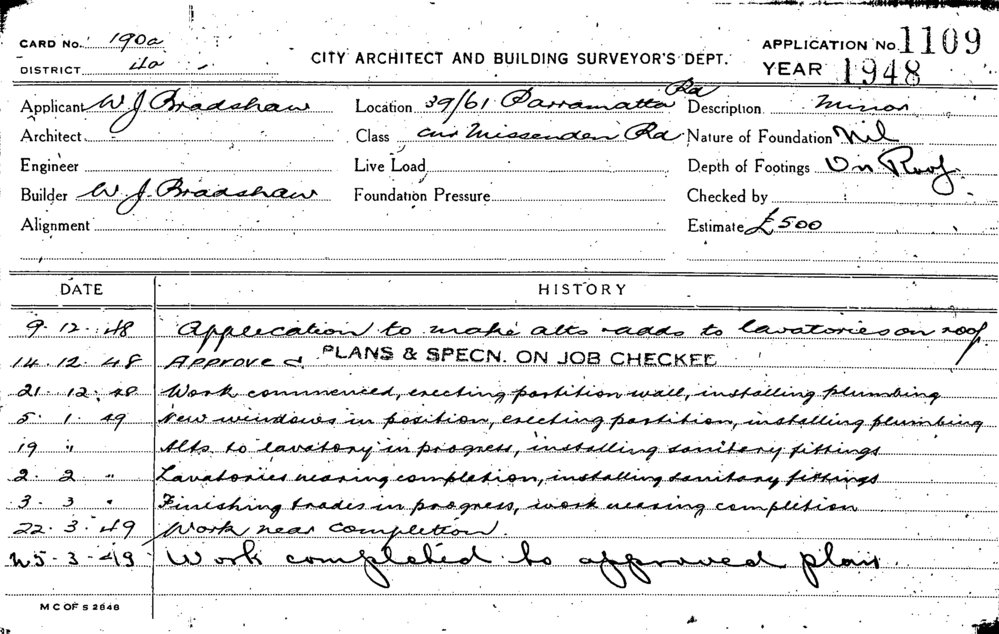 CARD No. 190a
DISTRICT 4a
CITY ARCHITECT AND BUILDING SURVEYOR'S DEPT.
APPLICATION No. 1109
YEAR 1948
Applicant W J Bradshaw Location 39/61 Parramatta Rd Description Minor
Architect Class cnr Missenden Rd Nature of Foundation Nil
Engineer Live Load Depth of Footings On Roof
Builder W J Bradshaw Foundation Pressure Checked by
Alignment Estimate £500
DATE HISTORY
9. 12. 48 Application to make alts & adds to lavatories on roof
14. 12. 48 Approved PLANS & SPECN. ON JOB CHECKED
21. 12. 48 Work commenced, erecting partition wall, installing plumbing
5. 1. 49 New windows in position, erecting partition, installing plumbing
19 " Alts. to lavatory in progress, installing sanitary fittings
2. 2 " Lavatories nearing completion, installing sanitary fittings
3. 3 " Finishing trades in progress, work nearing completion
22. 3. 49 Work near completion.
25. 3. 49 Work completed to approved plan.
M C OF S 2646